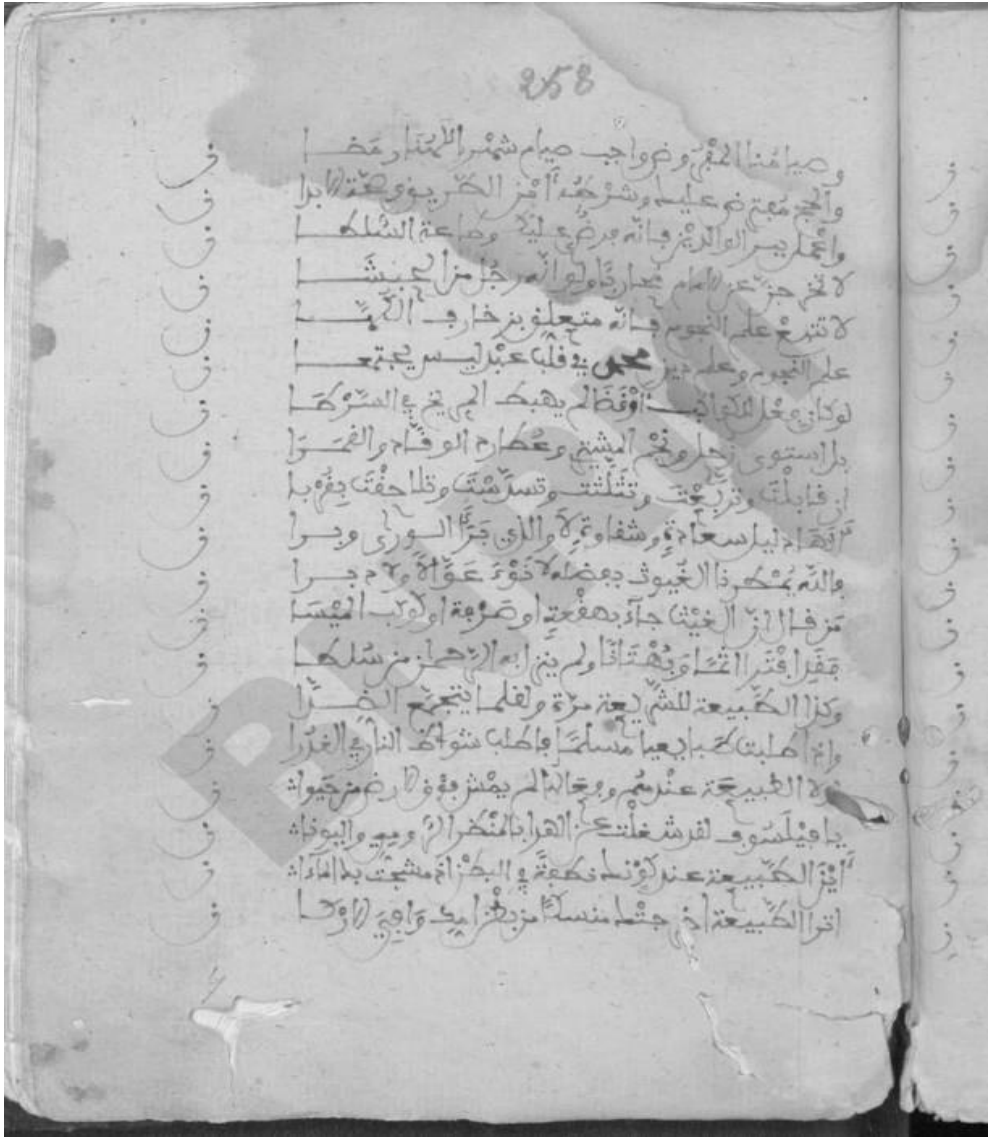 258
وصيامنا المفروض واجب صيام شهر رمضا ن
والحج مفترض عليك وشرطه أمن الطريق وصحة الابدا ن
واعمل ببر الوالدين فانه فرض عليك وطاعة السلطا ن
لا تخرجن عن الامام محاربا ولو انه رجل من الحبشا ن
لا تتبع علم النجوم فانه متعلق بزخارف الكها ن
علم النجوم وعلم دين محمد في قلب عبد ليس يجتمعا ن
لو كان فعل للكواكب أو قضا لم يهبط المريخ في السرطا ن
بل استوى زحل ونجم المشتري وعطارد الوقاد والقمرا ن
ان قابلت وتربعت وتثلثت وتسدست وتلاحقت بقربا ن
دليل سعادة وشقاوة لا والذي برأ الورى وبرا ن
والله يمطرنا الغيوث بفضله لا نوء عواء ولا دبرا ن
من قال ان الغيث جاء بهقعة او صرفة او كوكب الميسا ن
فقد افترا اثما وبهتانا ولم ينزل به الرحمن من سلطا ن
وكذا الطبيعة للشريعة ضدة ولقلما يتجمع الضدا ن
واذا طلبت طبايعيا مسلما فاطلب شواظ النار في الغدرا ن
لولا الطبيعة عندهم وفعالها لم يمش فوق الارض من حيوا ن
يا فيلسوف لقد شغلت عن الهدا بالمنطق الرومي واليونا ن
أين الطبيعة عند كونك نطفة في البطن اذ مشجت به الماءا ن
اترا الطبيعة أخرجتك منكسا من بطن امك واهي الاركا ن